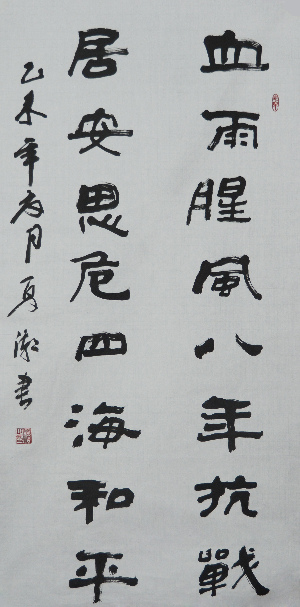 血雨腥風八年抗戰
居安思危四海和平
乙未年六月夏澍書